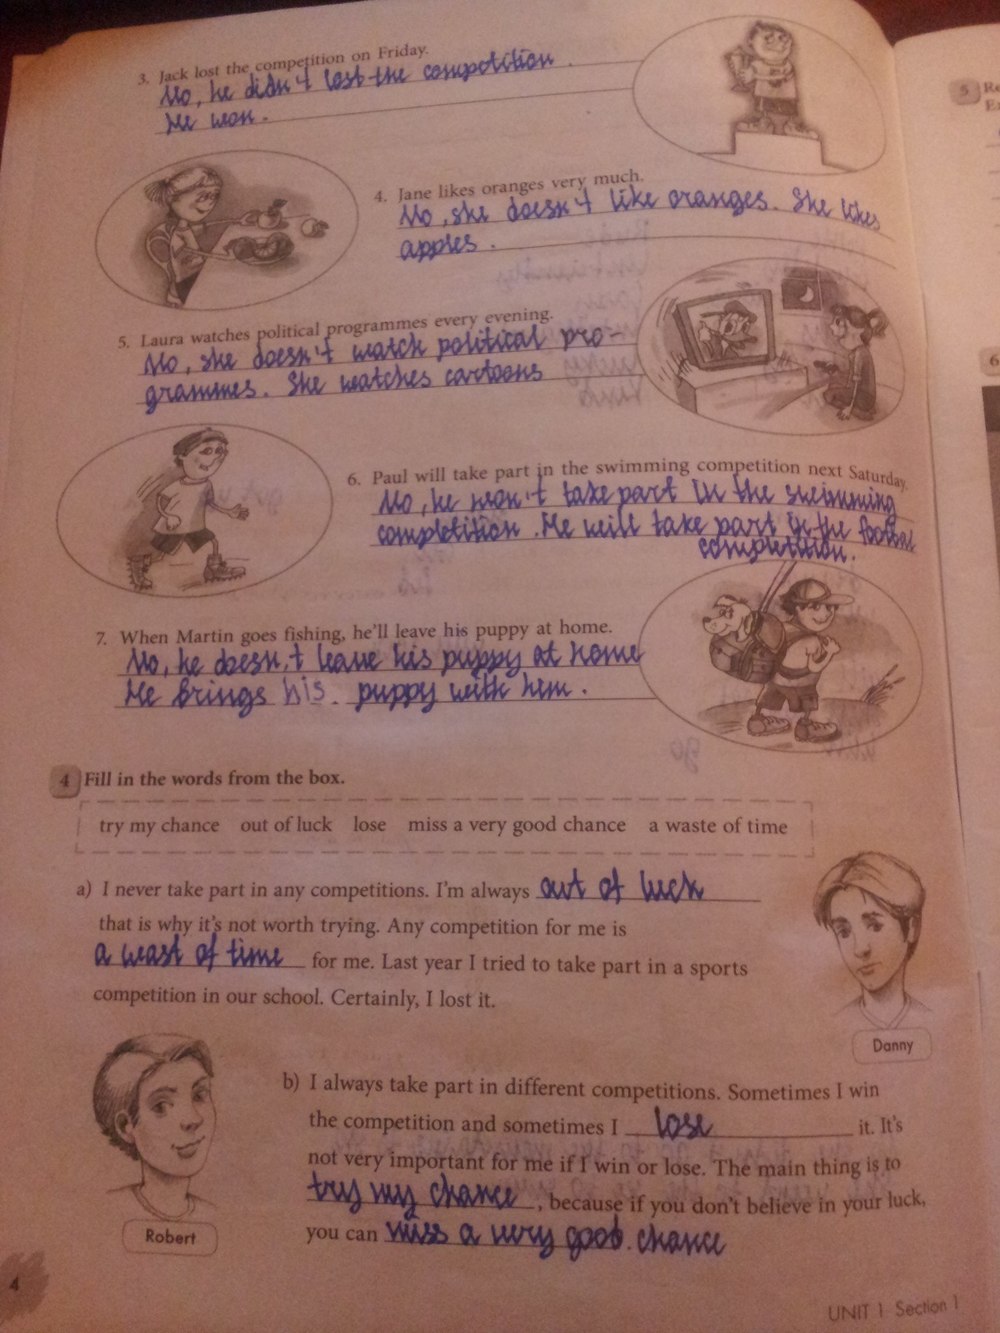 3. Jack lost the competition on Friday.
No, he didn't lost the compotition.
He won.
4. Jane likes oranges very much.
No, she doesn't like oranges. She likes
apples.
5. Laura watches political programmes every evening.
No, she doesn't watch political pro-
grammes. She watches cartoons
6. Paul will take part in the swimming competition next Saturday.
No, he won't take part in the swimming
completition. He will take part in the football
completition.
7. When Martin goes fishing, he'll leave his puppy at home.
No, he doesn't leave his puppy at home
He brings his. puppy with him.
4 Fill in the words from the box.
try my chance out of luck lose miss a very good chance a waste of time
a) I never take part in any competitions. I'm always out of luck
that is why it's not worth trying. Any competition for me is
a weast of time for me. Last year I tried to take part in a sports
competition in our school. Certainly, I lost it.
Danny
b) I always take part in different competitions. Sometimes I win
the competition and sometimes I lose it. It's
not very important for me if I win or lose. The main thing is to
try my chance, because if you don't believe in your luck,
you can miss a very good. chance
Robert
4
UNIT 1 Section 1
5 Re
6